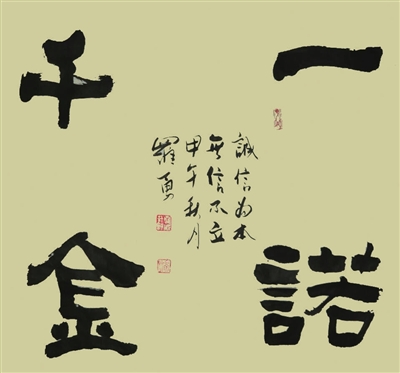 一諾
千金
誠信為本
無信不立
甲午秋月
羅勇